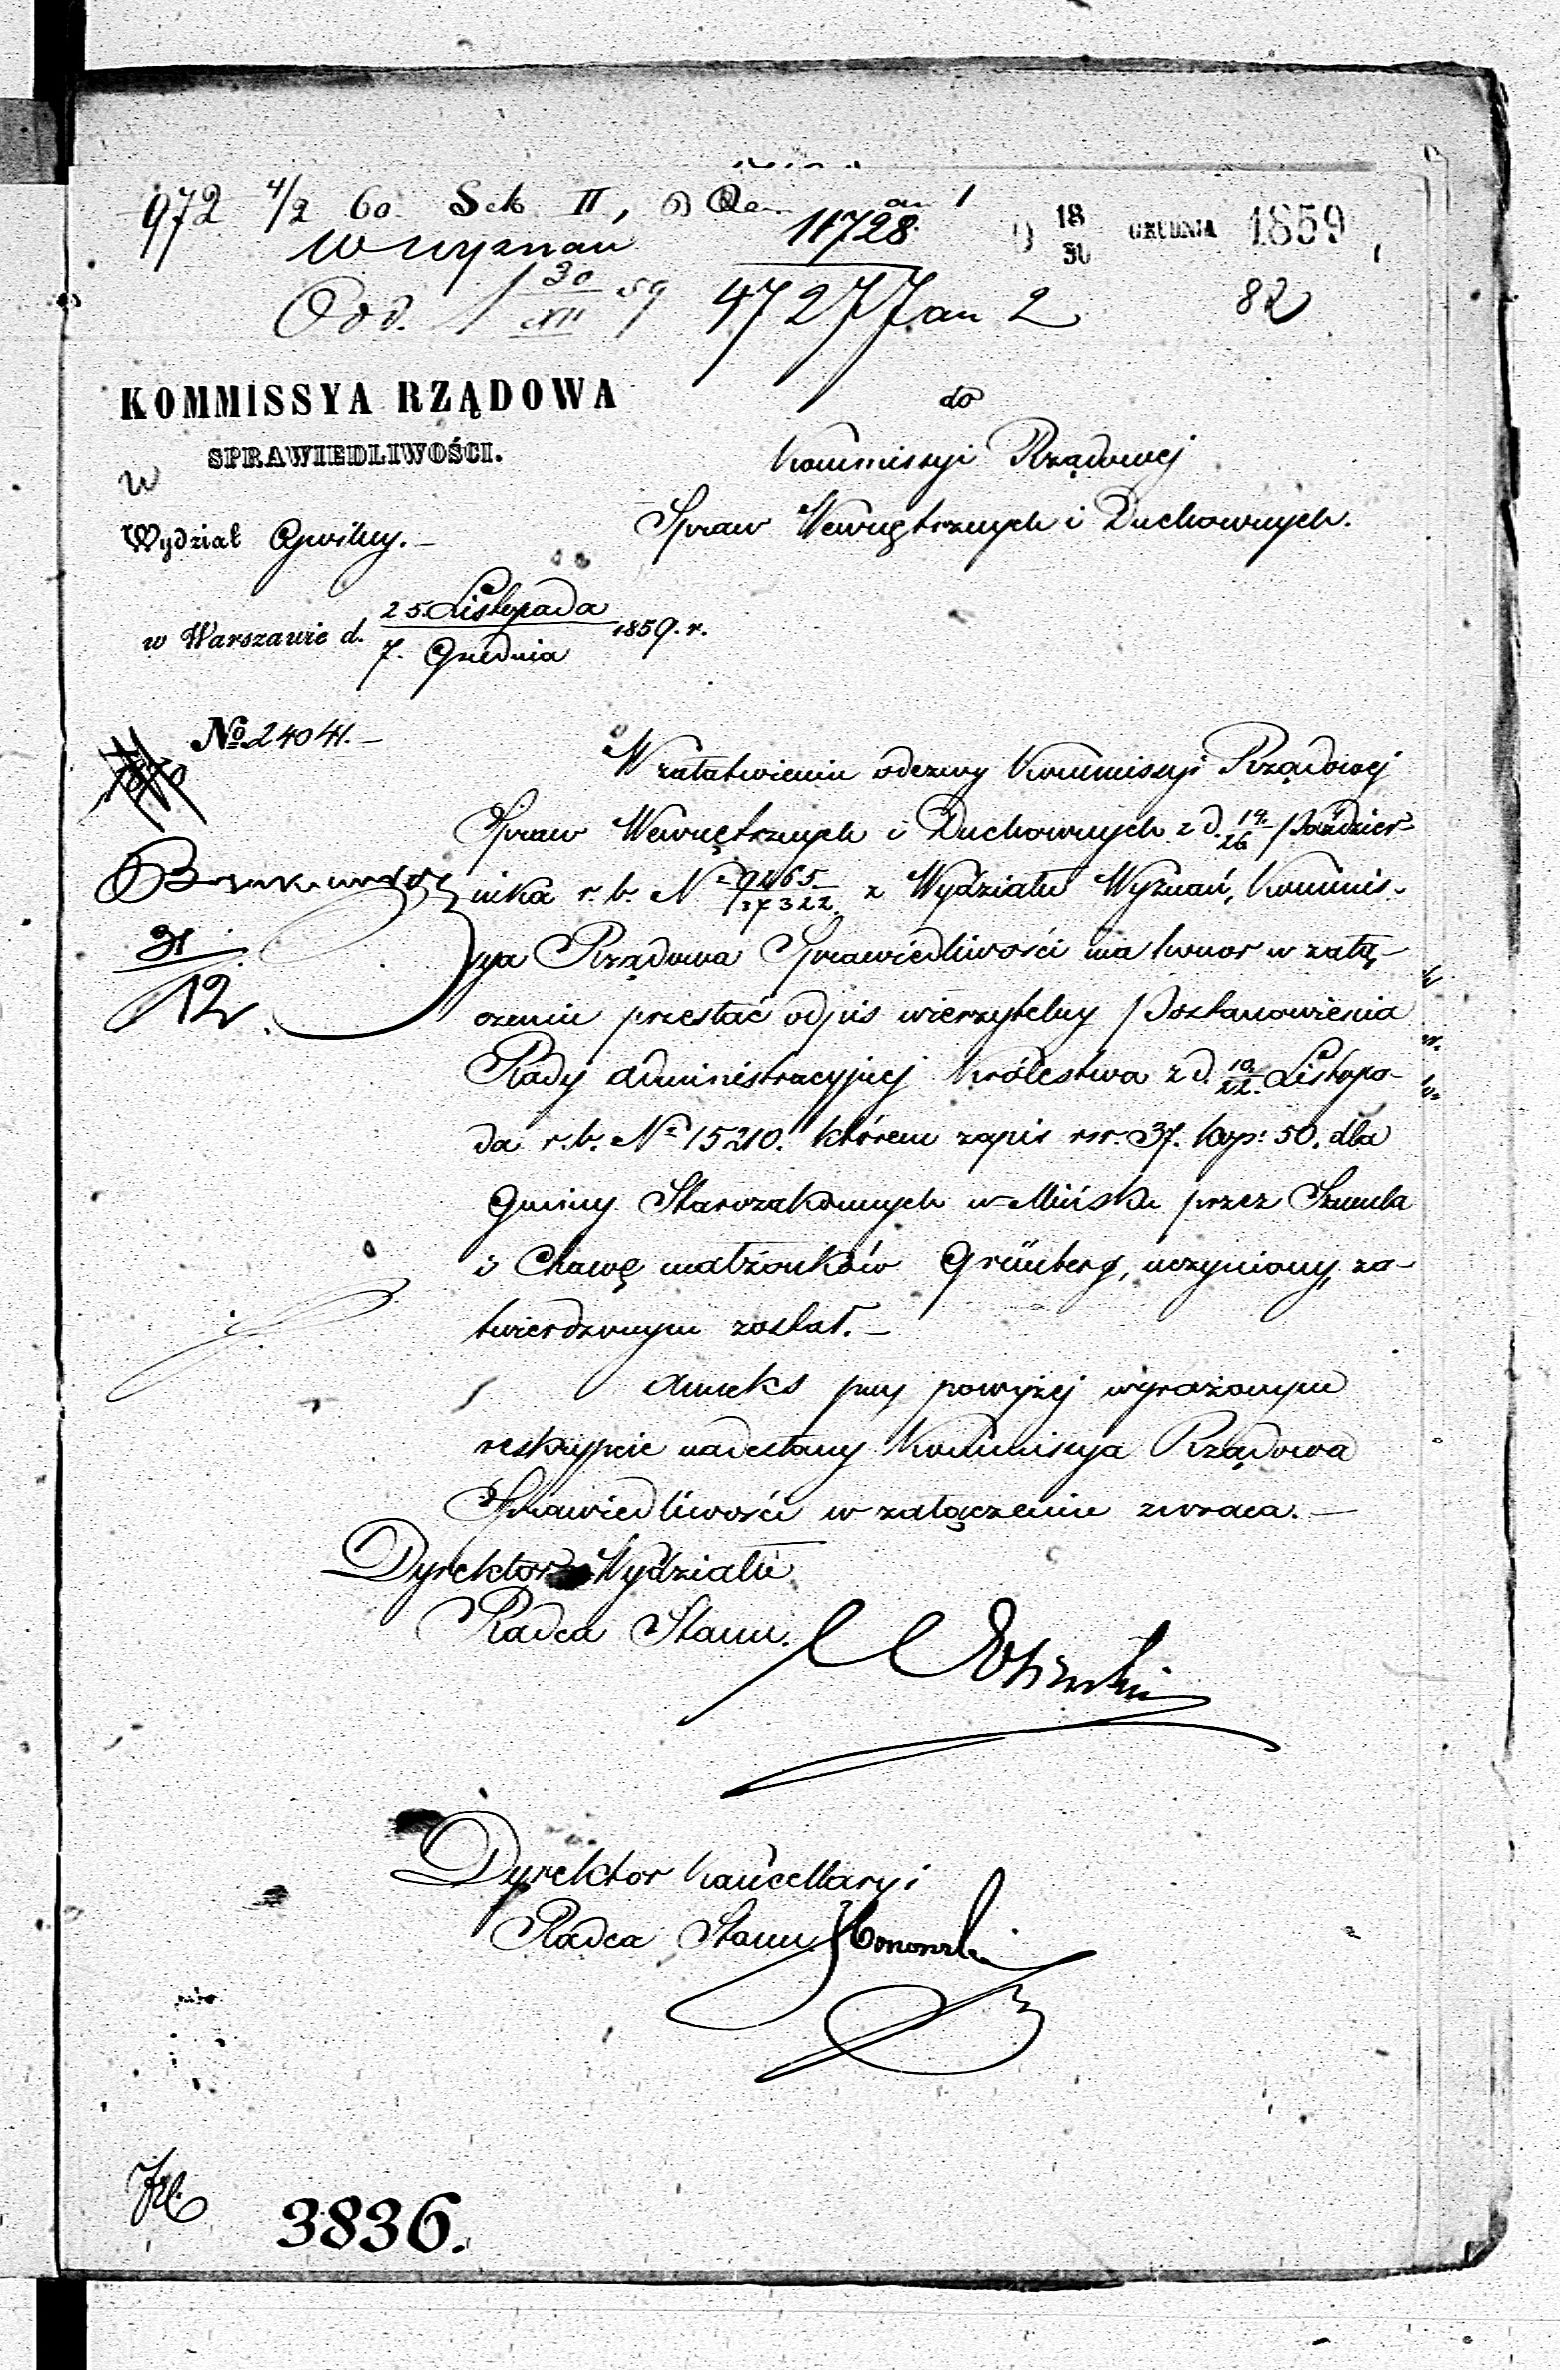 972 4/2 60. Sek II,
11728 an 1
18/30 GRUDNIA 1859
W wyznań
Odd. 30/XII 59 47277 an 2
82
KOMMISSYA RZĄDOWA
SPRAWIEDLIWOŚCI.
W
Wydział Cywilny.
w Warszawie d. 25. Listopada / 7. Grudnia 1859. r.
№ 24041.
do
Kommissyi Rządowej
Spraw Wewnętrznych i Duchownych.
W załatwieniu odezwy Kommissyi Rządowej
Spraw Wewnętrznych i Duchownych z d. 14./26 Paździer-
nika r. b. No 9465/37322. z Wydziału Wyznań, Kommis-
sya Rządowa Sprawiedliwości ma honor w załą-
czeniu przesłać odpis wierzytelny Postanowienia
Rady Administracyjnej Królestwa z d. 10/22. Listopa-
da r. b. No 15210. którem zapis rsr. 37. kop: 50. dla
Gminy Starozakonnych w Mińsku przez Szmula
i Chawę małżonków Grünberg, uczyniony, za-
twierdzonym został.
Anneks przy powyżej wyrażonym
reskrypcie nadesłany Kommissya Rządowa
Sprawiedliwości w załączeniu zwraca.
31/12
Dyrektor Wydziału
Radca Stanu.
Dyrektor Kancellaryi
Radca Stanu
3836.